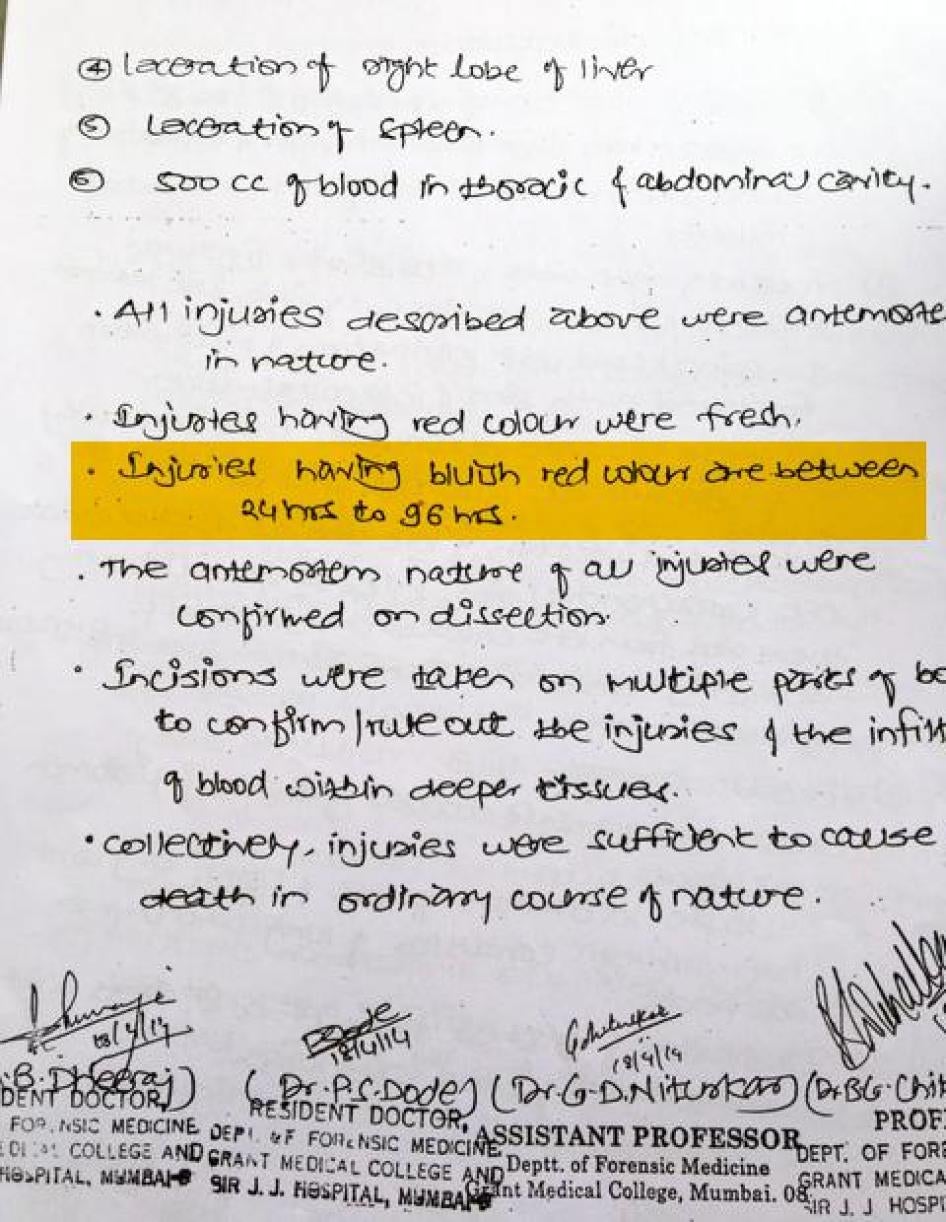 ④ Laceration of right lobe of liver
⑤ Laceration of spleen.
⑥ 500 cc of blood in thoracic & abdominal cavity.
· All injuries described above were antemorte
in nature.
· Injuries having red colour were fresh.
· Injuries having bluish red colour are between
24 hrs to 96 hrs.
· The antemortem nature of all injuries were
confirmed on dissection.
· Incisions were taken on multiple parts of bo
to confirm/rule out the injuries & the infilt
of blood within deeper tissues.
· collectively, injuries were sufficient to cause
death in ordinary course of nature.
18/4/14 18/4/14 18/4/14
B. Dheeraj) (Dr. P.S. Dode) (Dr. G.D. Niturkar) (Dr. B.G. Chik
DENT DOCTOR, RESIDENT DOCTOR, ASSISTANT PROFESSOR PROF
FORENSIC MEDICINE DEPT. OF FORENSIC MEDICINE Deptt. of Forensic Medicine DEPT. OF FORE
EDICAL COLLEGE AND GRANT MEDICAL COLLEGE AND Grant Medical College, Mumbai. 08. GRANT MEDICA
HOSPITAL, MUMBAI-8 SIR J. J. HOSPITAL, MUMBAI-8 SIR J. J HOSPI